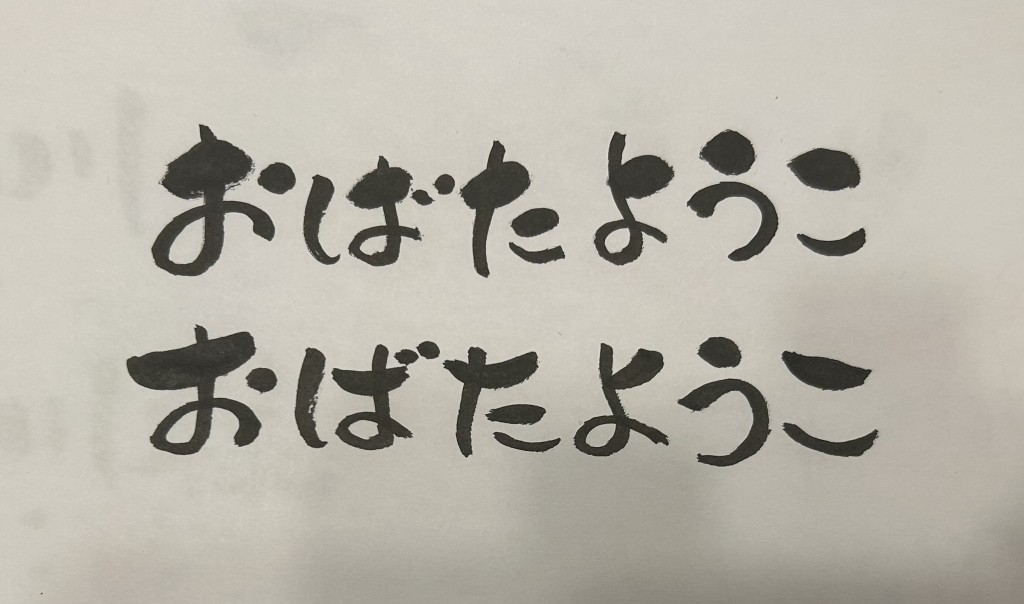 おばたようこ
おばたようこ